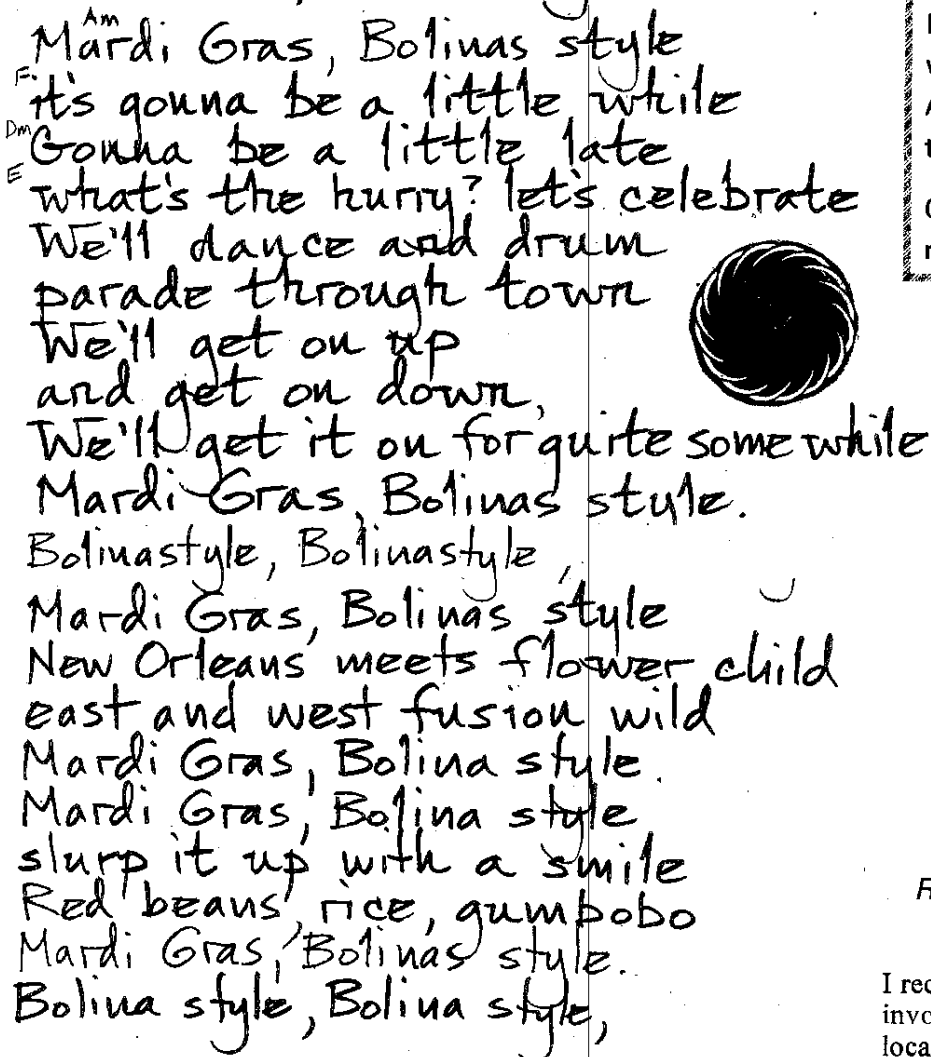 Am
Mardi Gras, Bolinas style
F
it's gonna be a little while
Dm
Gonna be a little late
E
what's the hurry? let's celebrate
We'll dance and drum
parade through town
We'll get on up
and get on down,
We'll get it on for quite some while
Mardi Gras, Bolinas style.
Bolinastyle, Bolinastyle,
Mardi Gras, Bolinas style
New Orleans meets flower child
east and west fusion wild
Mardi Gras, Bolina style.
Mardi Gras, Bolina style
slurp it up with a smile
Red beans, rice, gumbobo
Mardi Gras, Bolinas style.
Bolina style, Bolina style,
I rec
invo
loca